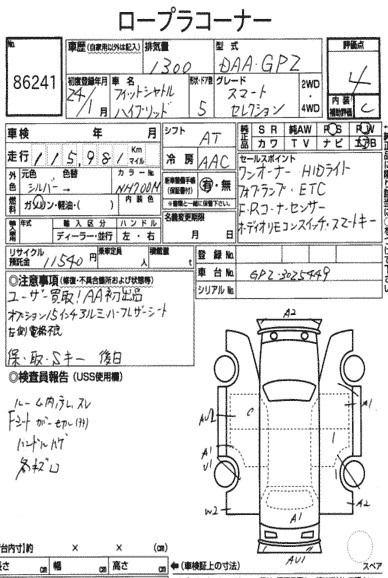 ロープラコーナー
No. 86241
車歴 (自家用以外は記入) 排気量 1300 型式 DAA-GP2 評価点 4
初度登録年月 24/1月 車名 フィットシャトル ハイブリッド 形状・ドア数 5 グレード スマート セレクション 2WD・4WD 内装補助評価 C
車検 年 月 シフト AT 純正部品 SR 純AW PS PW
カワ TV ナビ エアB
走行 115,981 Km マイル 冷房 AAC セールスポイント
外色 元色 シルバー→ 色替 カラーNo. NH700M ワンオーナー HIDライト
燃料 ガソリン・軽油・( ) 内装色 新車整備手帳(保証書付) 有・無 フォグランプ・ETC
輸入車 年式 輸入区分 ハンドル F・Rコーナーセンサー
ディーラー・並行 左・右 名義変更期限 月 日 オーディオリモコンスイッチ・スマートキー
リサイクル預託金 11540円 乗車定員 人 積載量 t 登録No.
車台No. GP2-3025449
シリアルNo.
◎注意事項 (修復・不具合箇所および状態等)
ユーザー買取!AA初出品
オプション15インチアルミ
保・取・Sキー 後日
◎検査員報告 (USS使用欄)
ルーム内汚レ スレ
Fシート
ハンドル
各キズ凹
A2
A1
C
AU2
A1
U1
1
A1
W2
A2
A1
AU1
(荷台内寸)約 × × (cm)
長さ cm 幅 cm 高さ cm ←(車検証上の寸法) スペア